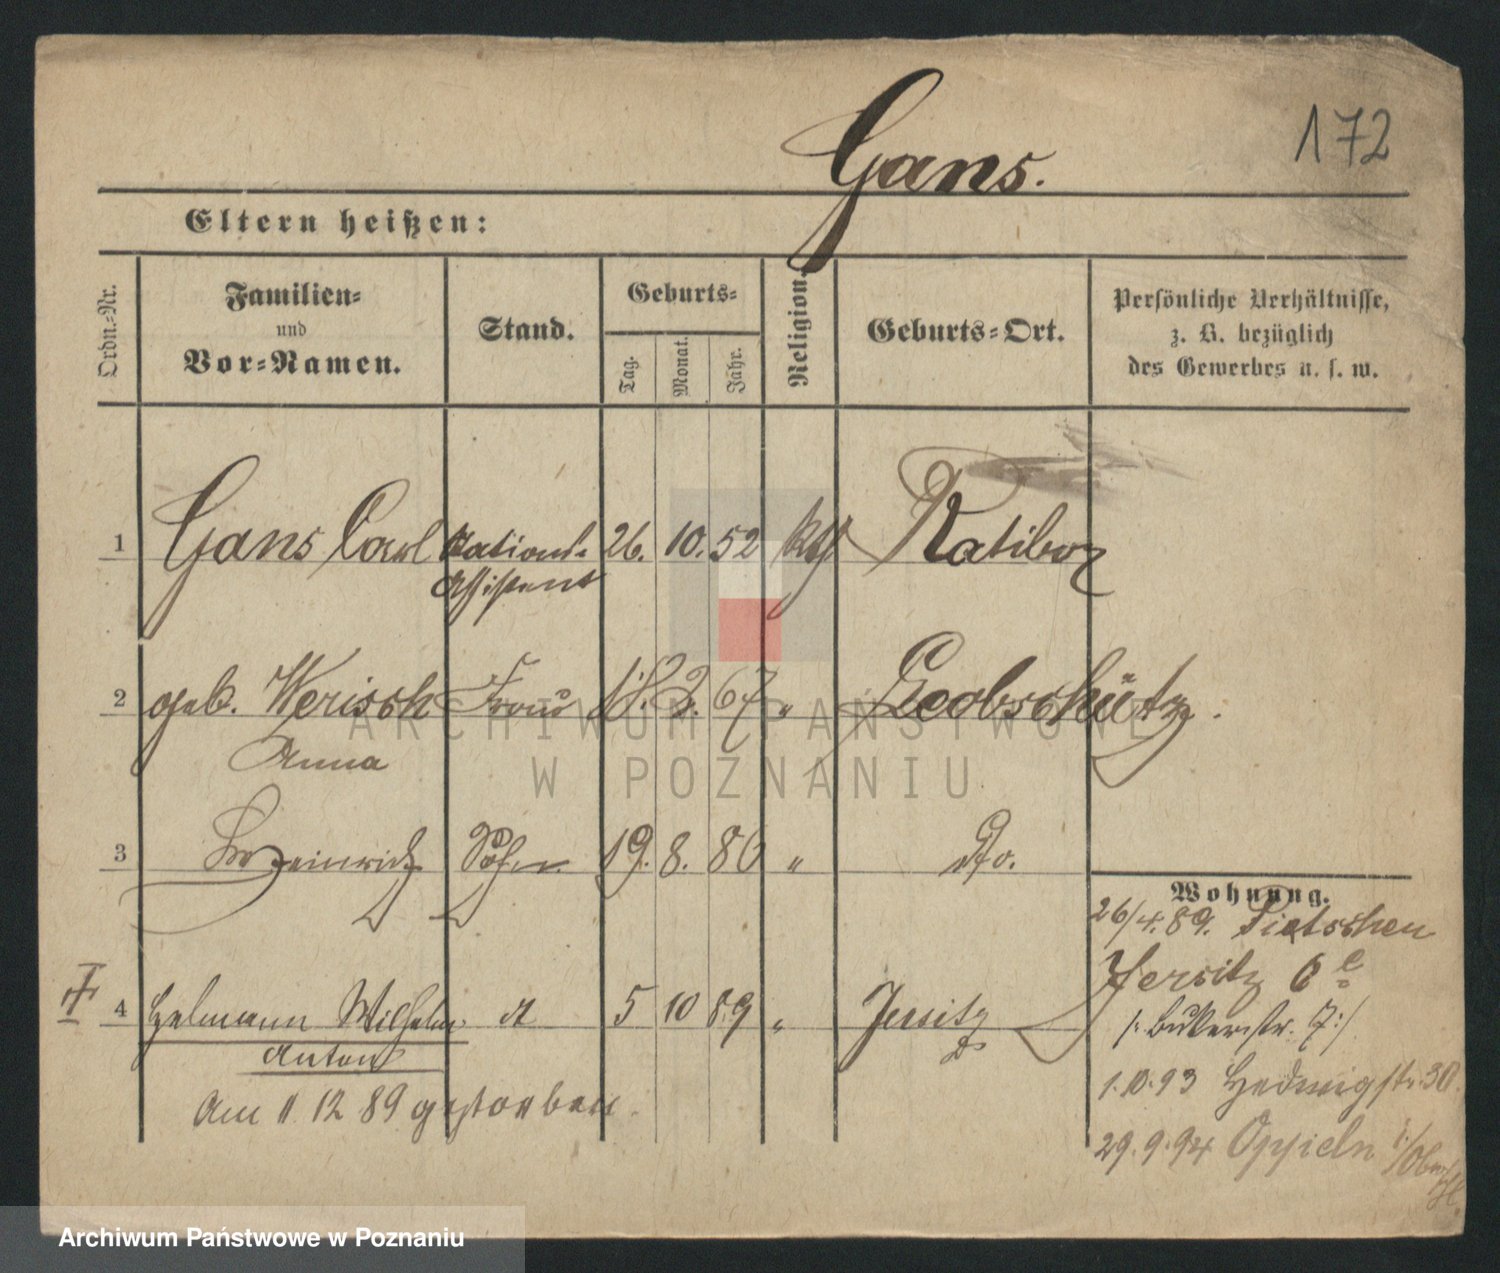 172
Gans.
Eltern heißen:
Ordn.-Nr.
Familien-
und
Vor-Namen.
Stand.
Geburts-
Tag.
Monat.
Jahr.
Religion.
Geburts-Ort.
Persönliche Verhältnisse,
z. B. bezüglich
des Gewerbes u. s. w.
1 Gans Carl Stations- 26. 10. 52 kth Ratibor
Assistent
2 geb. Werissch Frau 18. 2. 67 " Leobschütz.
Anna
3 Heinrich Sohn 19. 8. 86 " dto.
Wohnung.
26/4. 89. Pietschen
Jersitz 6 e
4 Hermann Wilhelm 5 10 89 " Jersitz
/: Bukerstr. 7:/
Anton
1.10.93 Hedwigstr. 30.
Am 11 12 89 gestorben.
29.9.94 Oppeln
ARCHIWUM PAŃSTWOWE
W POZNANIU
Archiwum Państwowe w Poznaniu